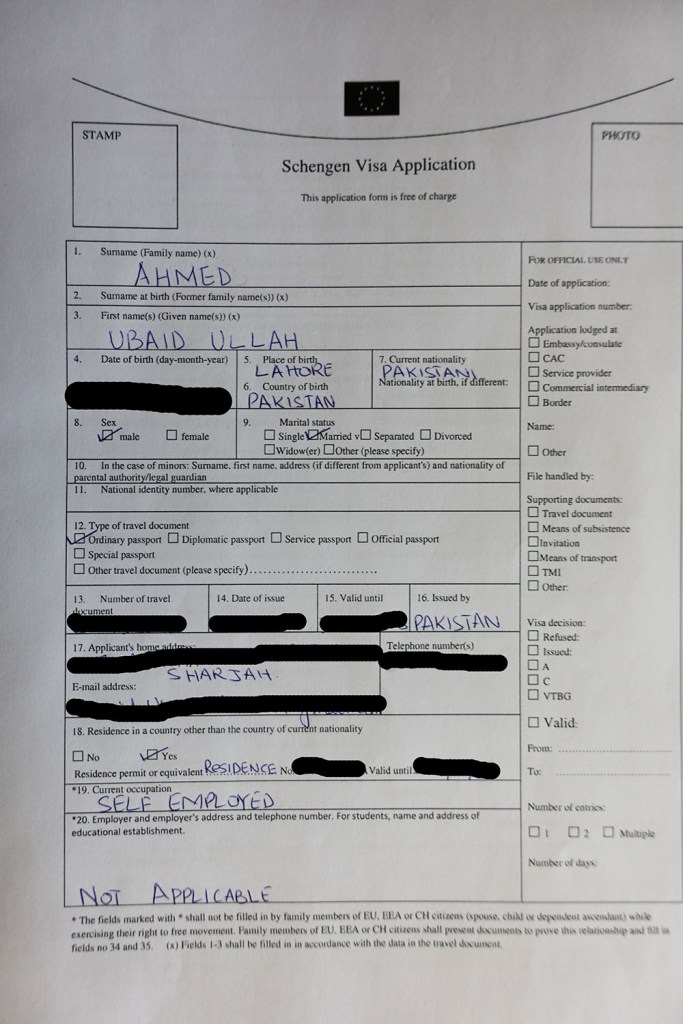 STAMP
PHOTO
Schengen Visa Application
This application form is free of charge
1. Surname (Family name) (x)
AHMED
2. Surname at birth (Former family name(s)) (x)
3. First name(s) (Given name(s)) (x)
UBAID ULLAH
4. Date of birth (day-month-year)
5. Place of birth
LAHORE
6. Country of birth
PAKISTAN
7. Current nationality
PAKISTANI
Nationality at birth, if different:
8. Sex
male female
9. Marital status
Single Married Separated Divorced
Widow(er) Other (please specify)
10. In the case of minors: Surname, first name, address (if different from applicant's) and nationality of
parental authority/legal guardian
11. National identity number, where applicable
12. Type of travel document
Ordinary passport Diplomatic passport Service passport Official passport
Special passport
Other travel document (please specify)................................
13. Number of travel
document
14. Date of issue
15. Valid until
16. Issued by
PAKISTAN
17. Applicant's home address
SHARJAH.
E-mail address:
Telephone number(s)
18. Residence in a country other than the country of current nationality
No Yes
Residence permit or equivalent RESIDENCE No Valid until
*19. Current occupation
SELF EMPLOYED
*20. Employer and employer's address and telephone number. For students, name and address of
educational establishment.
NOT APPLICABLE
FOR OFFICIAL USE ONLY
Date of application:
Visa application number:
Application lodged at
Embassy/consulate
CAC
Service provider
Commercial intermediary
Border
Name:
Other
File handled by:
Supporting documents:
Travel document
Means of subsistence
Invitation
Means of transport
TMI
Other:
Visa decision:
Refused:
Issued:
A
C
VTBG
Valid:
From: ................................
To: ................................
Number of entries:
1 2 Multiple
Number of days:
* The fields marked with * shall not be filled in by family members of EU, EEA or CH citizens (spouse, child or dependent ascendant) while
exercising their right to free movement. Family members of EU, EEA or CH citizens shall present documents to prove this relationship and fill in
fields no 34 and 35. (x) Fields 1-3 shall be filled in in accordance with the data in the travel document.